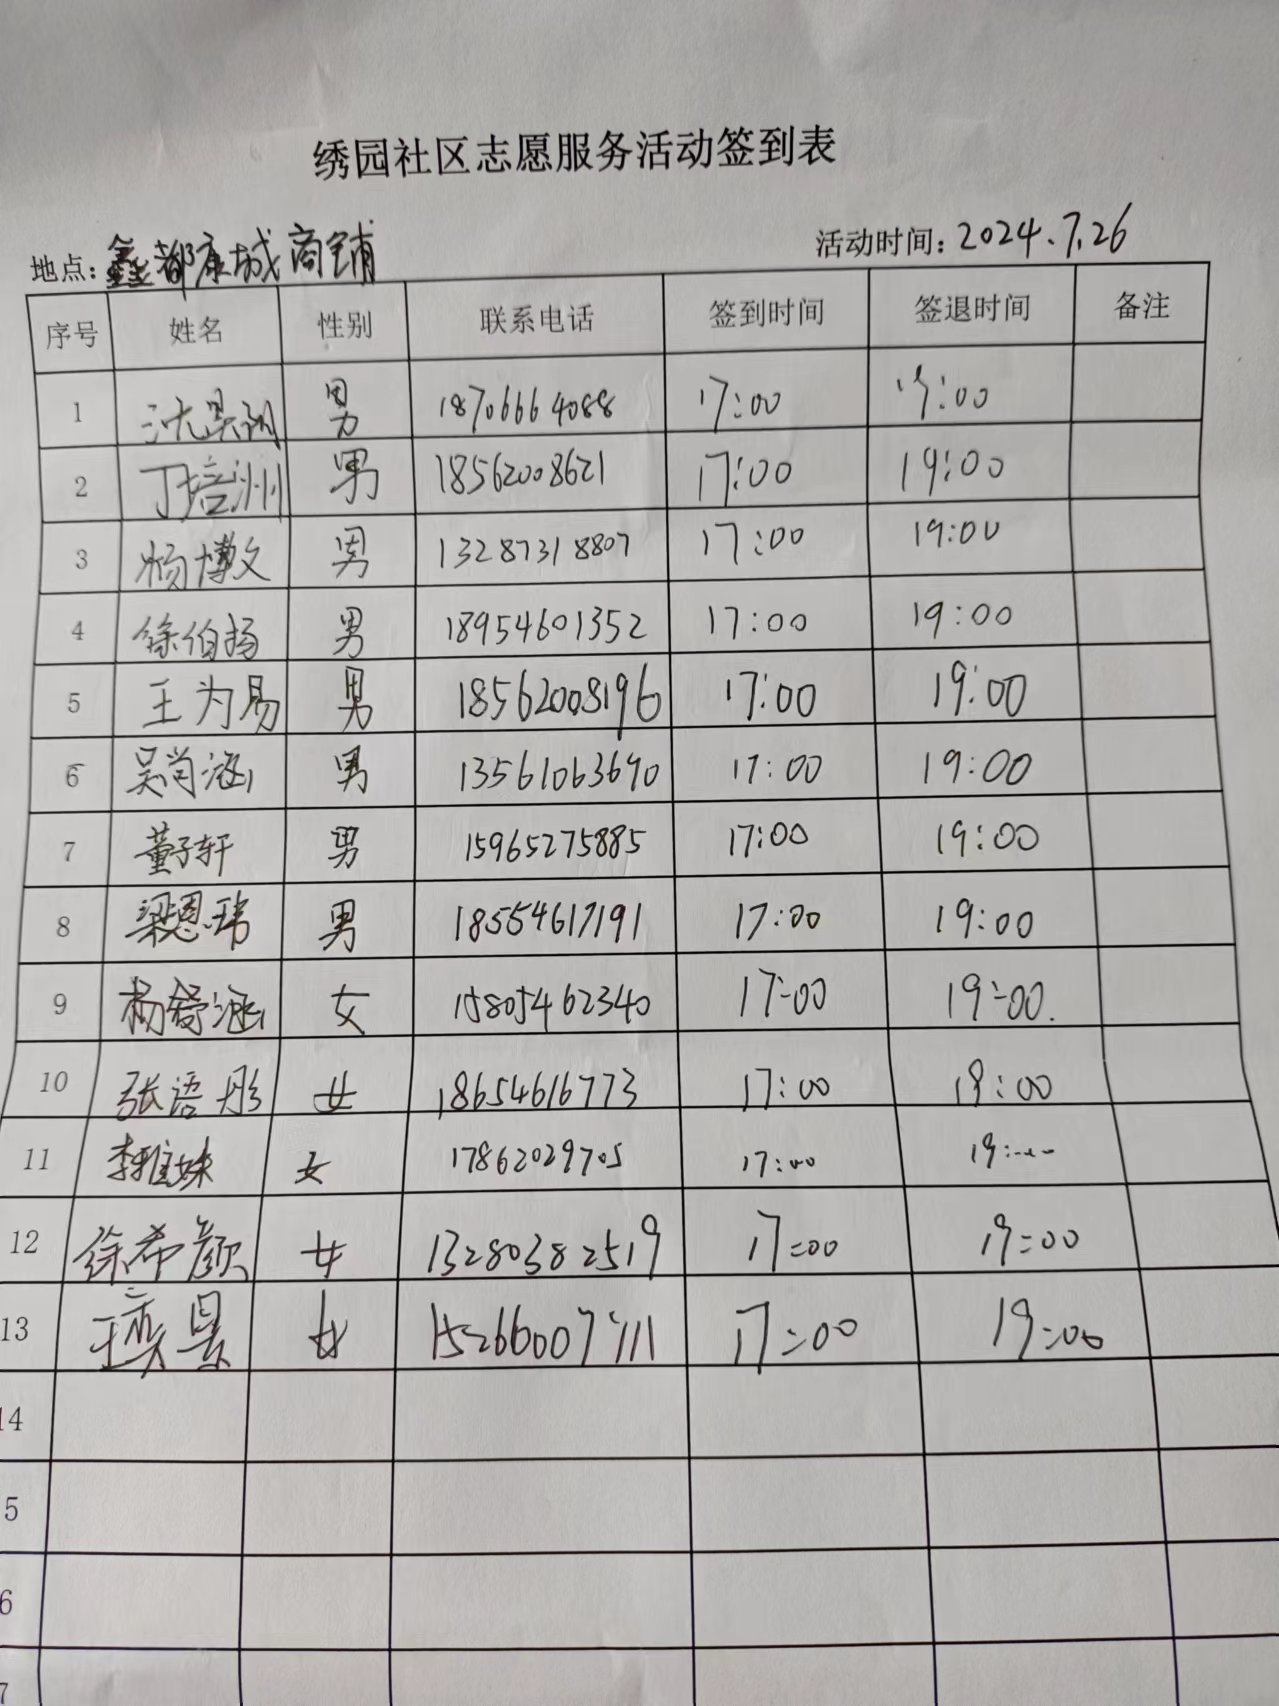 绣园社区志愿服务活动签到表
地点：鑫都康城商铺 活动时间：2024.7.26
序号 姓名 性别 联系电话 签到时间 签退时间 备注
1 男 18706664088 17:00 19:00
2 丁培洲 男 18562008621 17:00 19:00
3 杨博文 男 13287318807 17:00 19:00
4 徐伯扬 男 18954601352 17:00 19:00
5 王为易 男 18562008196 17:00 19:00
6 吴尚涵 男 13561063690 17:00 19:00
7 董子轩 男 15965275885 17:00 19:00
8 梁恩玮 男 18554617191 17:00 19:00
9 杨舒涵 女 15805462340 17:00 19:00.
10 张语彤 女 18654616773 17:00 19:00
11 李雅姝 女 17862029705 17:00 19:00
12 徐希颜 女 13280382519 17:00 19:00
13 王奕景 女 17:00 19:00
14
5
6
7